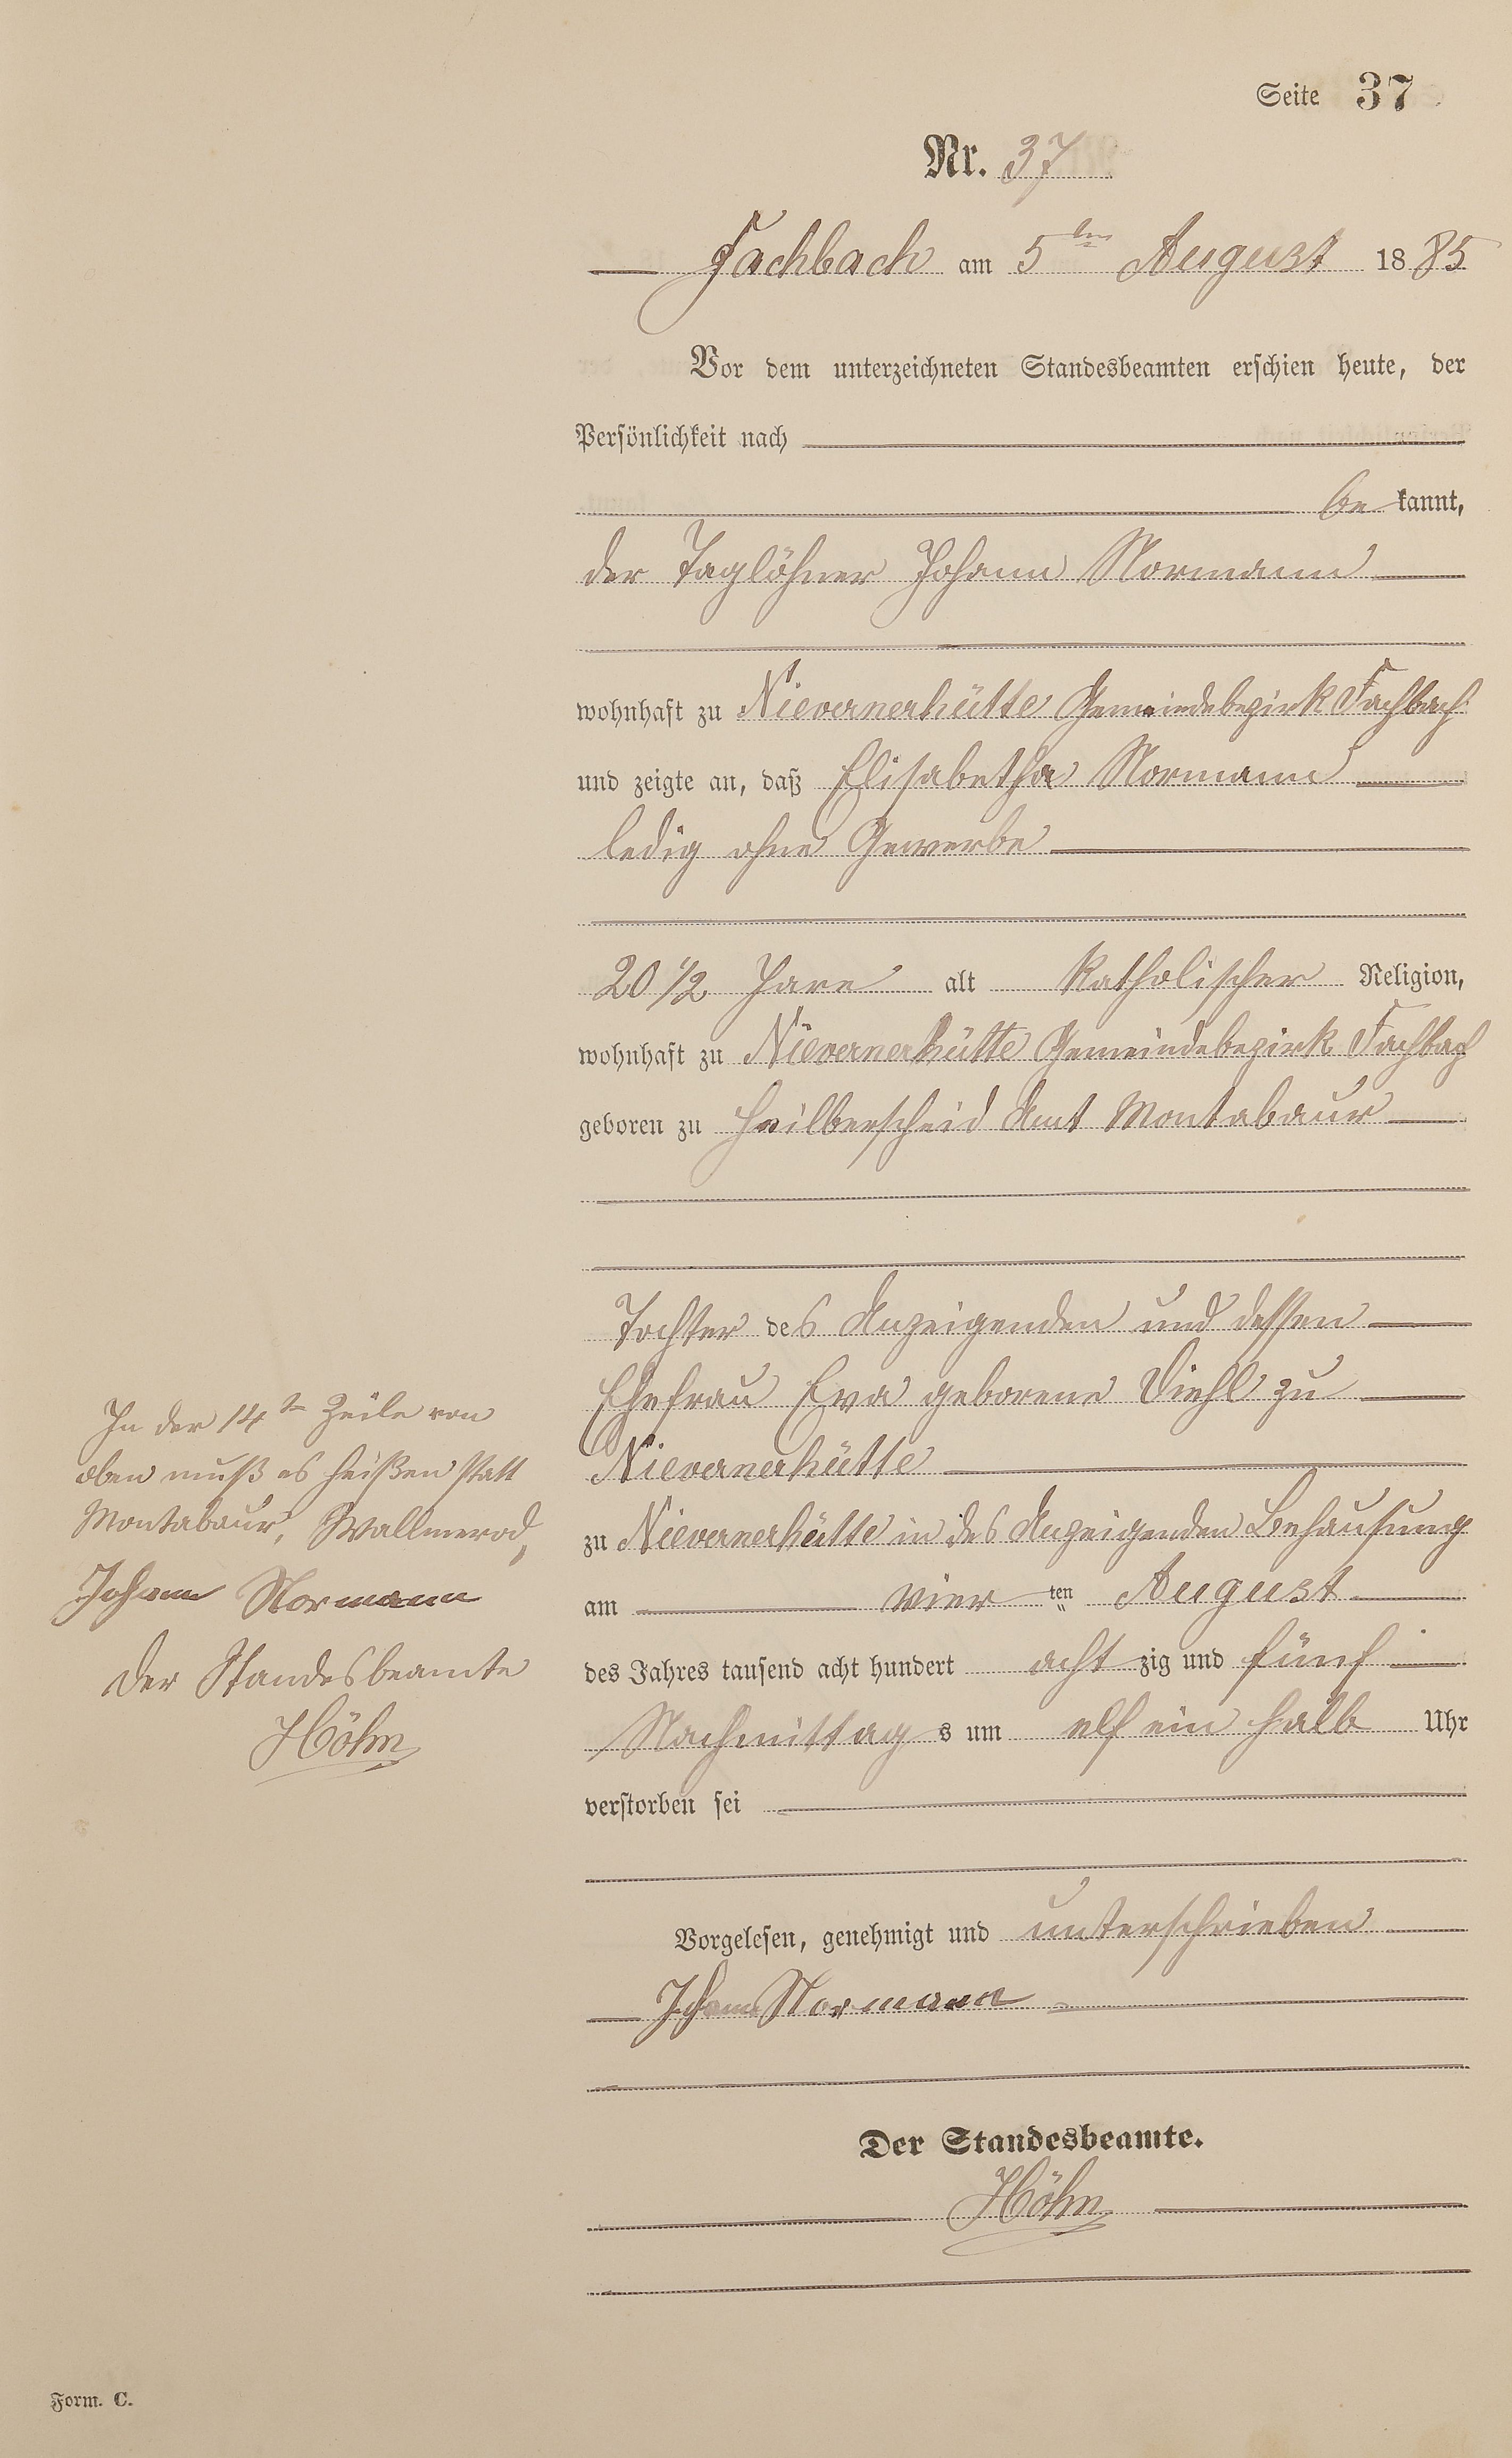 Seite 37
Nr. 37
Fachbach am 5ten August 1885
Vor dem unterzeichneten Standesbeamten erschien heute, der
Persönlichkeit nach
bekannt,
der Taglöhner Johann Normann
wohnhaft zu Nievernerhütte Gemeindebezirk Fachbach
und zeigte an, daß Elisabetha Normann
ledig ohne Gewerbe
20 1/2 Jare alt katholischer Religion,
wohnhaft zu Nievernerhütte Gemeindebezirk Fachbach
geboren zu Heilberscheid Amt Montabaur
Tochter des Anzeigenden und dessen
Ehefrau Eva geborene Diehl zu
Nievernerhütte
zu Nievernerhütte in des Anzeigenden Behausung
am vier ten August
des Jahres tausend acht hundert acht zig und fünf
Nachmittag s um elf ein halb Uhr
verstorben sei
Vorgelesen, genehmigt und unterschrieben
Johann Normann
Der Standesbeamte.
Höhn
In der 14ten Zeile von
oben muß es heißen statt
Montabaur, Wallmerod,
Johann Normann
Der Standesbeamte
Höhn
Form. C.